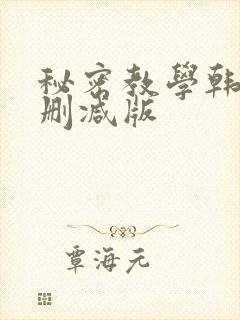 秘密教學韩
删减版
覃海元